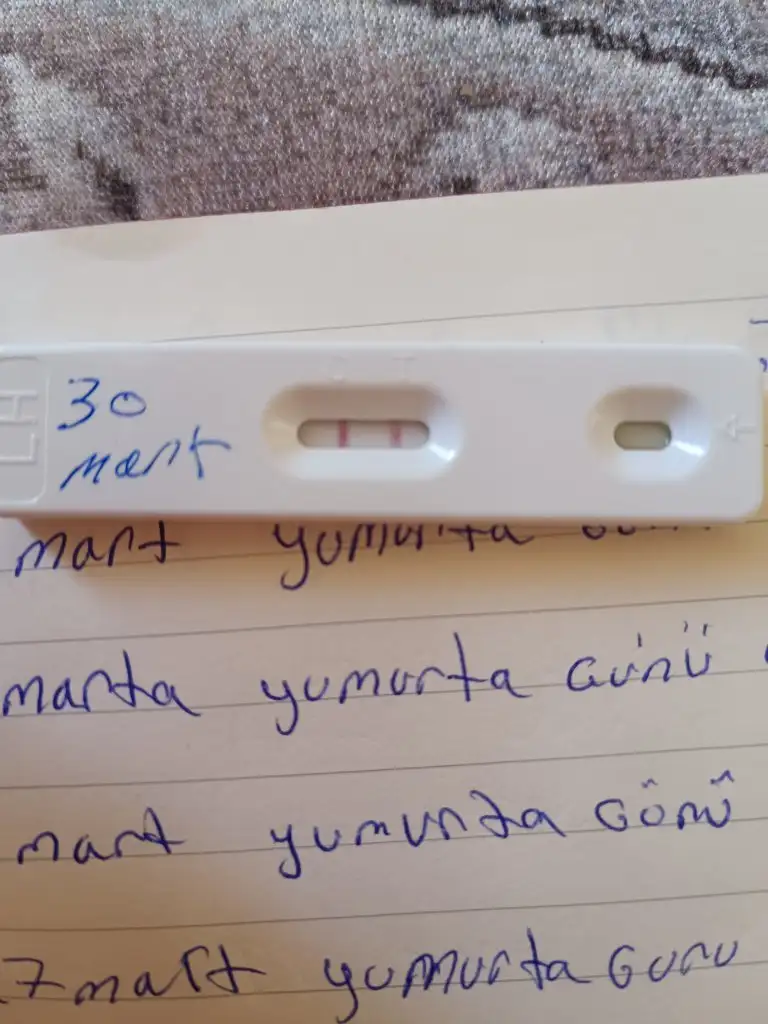 LH
30
mart
mart yumurta
marta yumurta Günü
mart yumurta Günü
7 mart yumurta Gunu